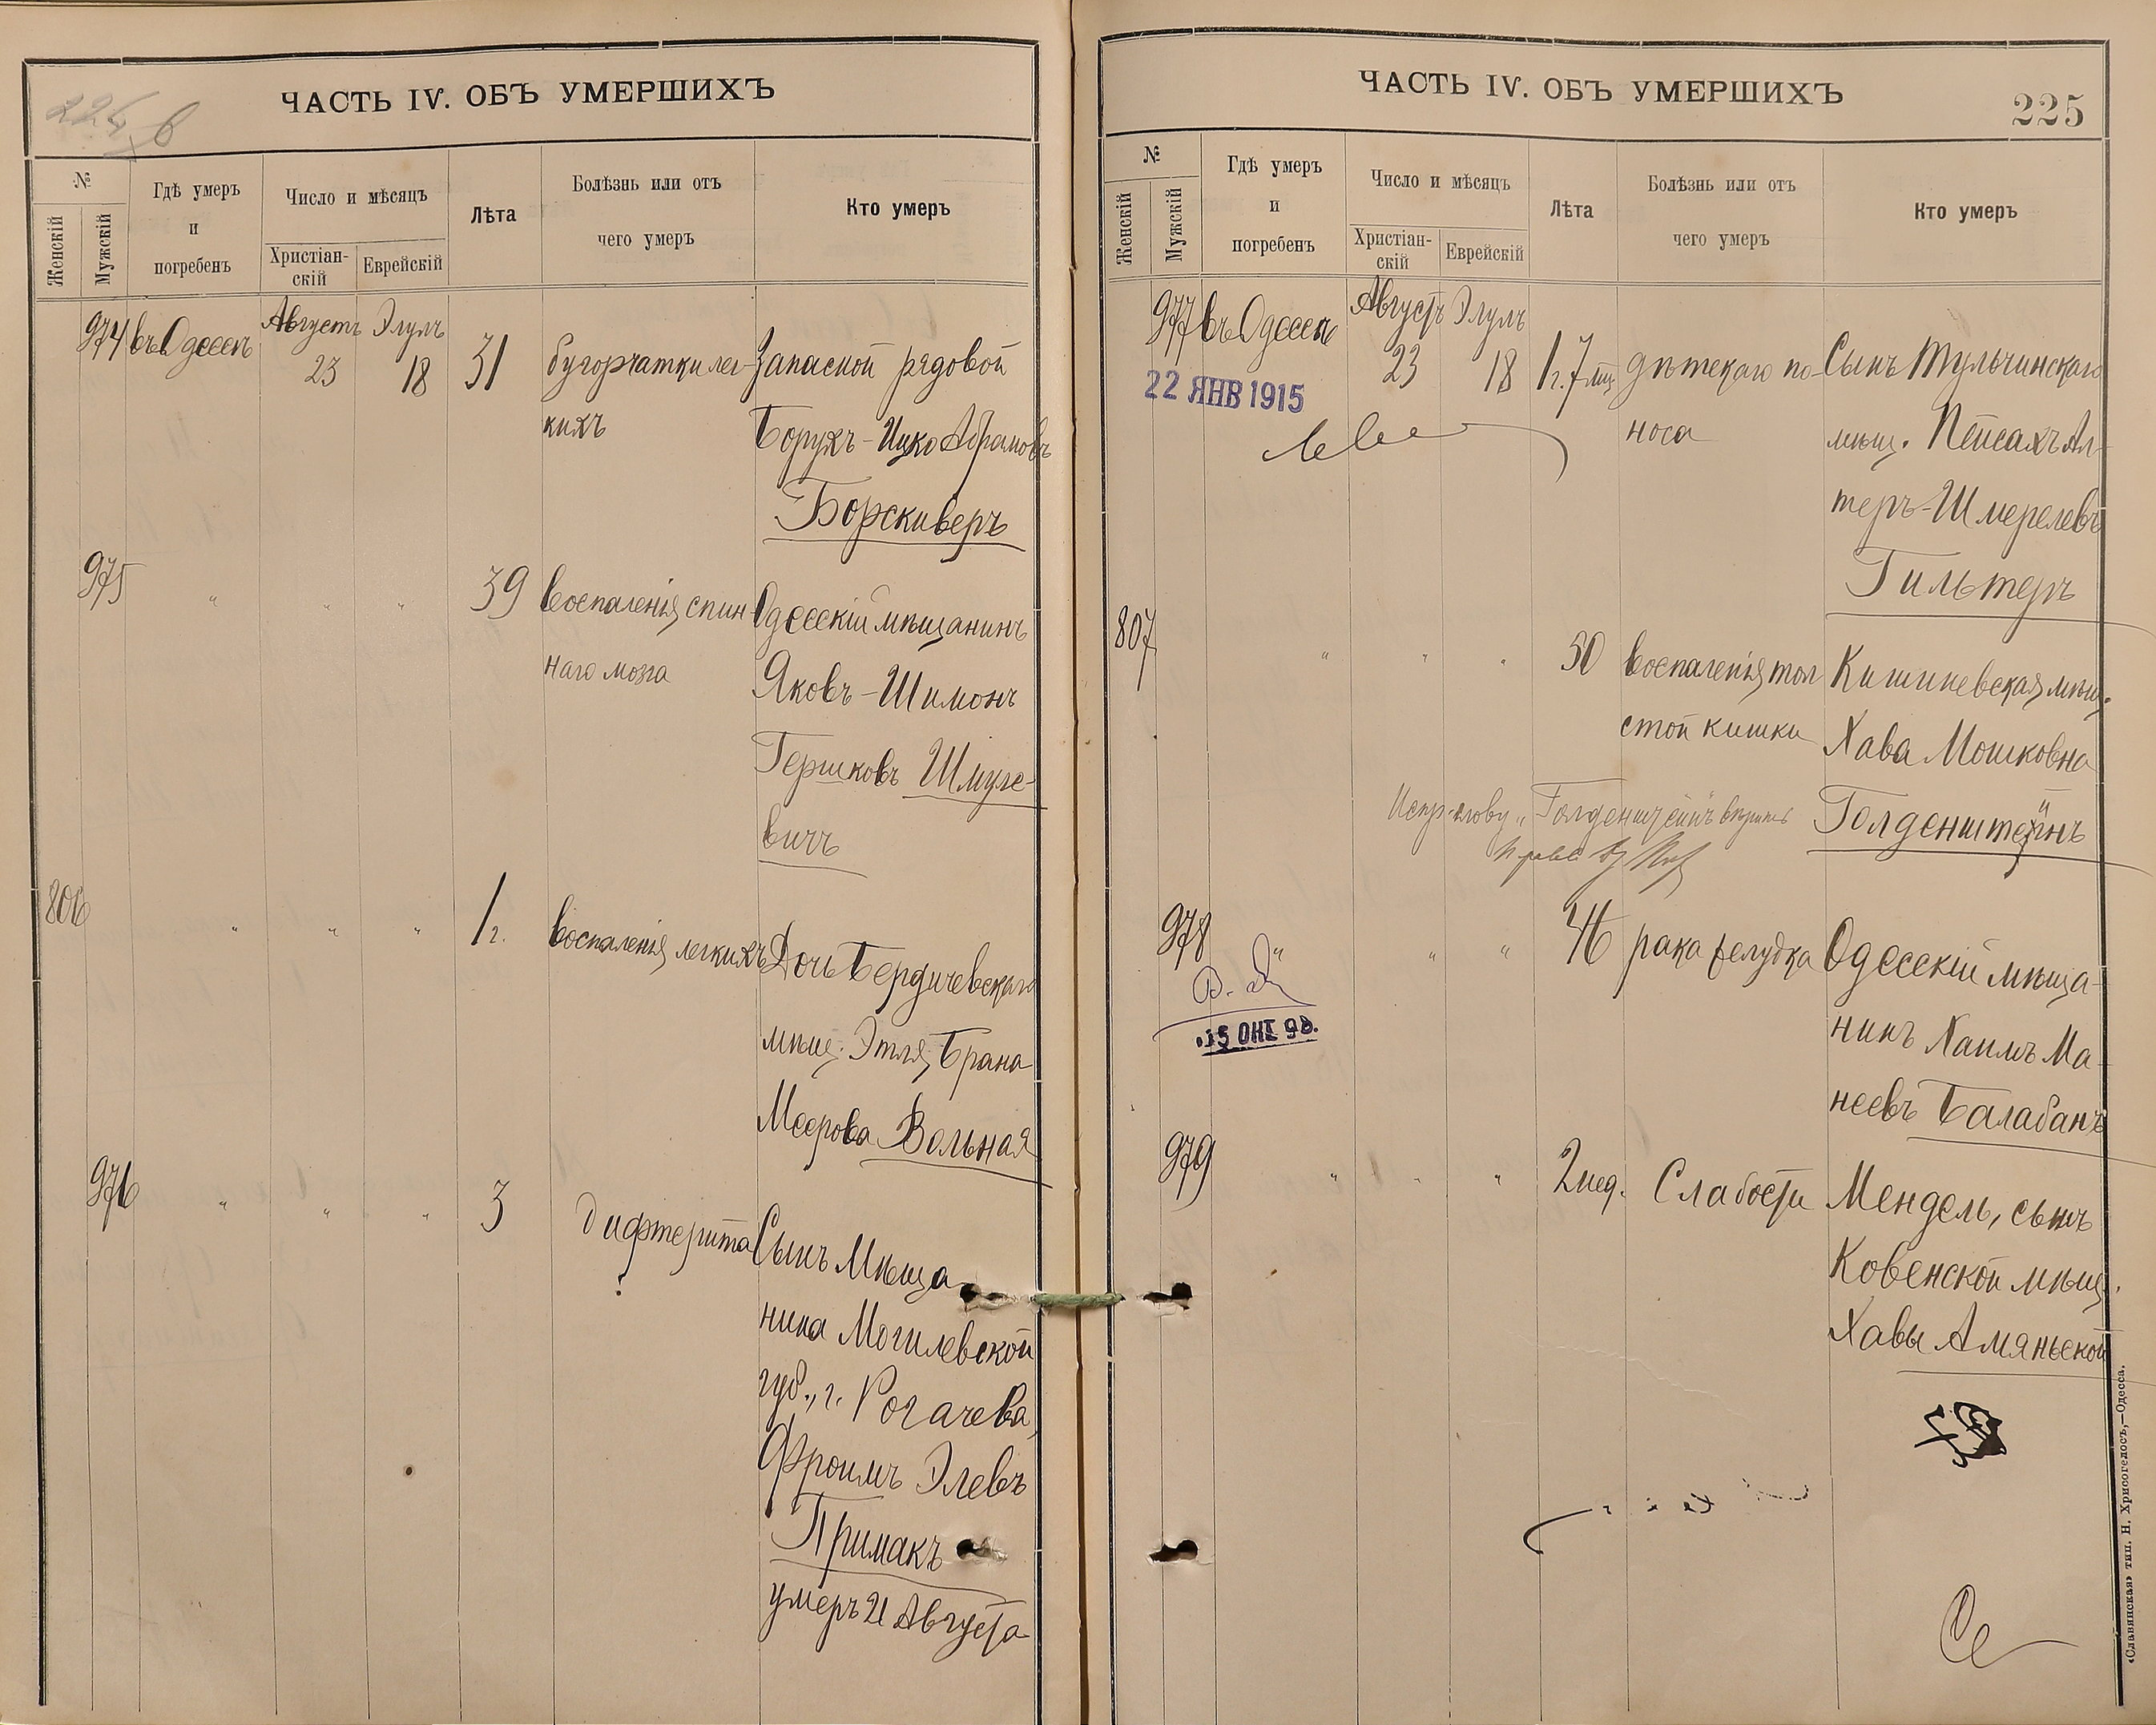 ЧАСТЬ IV. ОБЪ УМЕРШИХЪ
№
Женскій
Мужскій
Гдѣ умеръ
и
погребенъ
Число и мѣсяцъ
Христіан-
скій
Еврейскій
Лѣта
Болѣзнь или отъ
чего умеръ
Кто умеръ
974 въ Одессѣ Августъ 23 Элулъ 18 31 бугорчатки лег-
кихъ
Запасной рядовой
Борухъ-Ицко Абрамовъ
Борскиверъ
975 " " " 39 воспаленія спин-
наго мозга
Одесскій мѣщанинъ
Яковъ-Шимонъ
Гершковъ Шмуле-
вичъ
806 " " " 1 г. воспаленія легкихъ
Дочь Бердичевскаго
мѣщ. Этля Брана
Меерова Вольная
976 " " " 3 дифтерита
Сынъ Мѣща-
нина Могилевской
губ., г. Рогачева,
Фроимъ Элевъ
Примакъ
умеръ 21 Августа
ЧАСТЬ IV. ОБЪ УМЕРШИХЪ
225
№
Женскій
Мужскій
Гдѣ умеръ
и
погребенъ
Число и мѣсяцъ
Христіан-
скій
Еврейскій
Лѣта
Болѣзнь или отъ
чего умеръ
Кто умеръ
977 въ Одессѣ Августъ 23 Элулъ 18 1 г. 7 мц дѣтскаго по-
носа
22 ЯНВ 1915
Сынъ Тульчинскаго
мѣщ. Пейсахъ Ал-
теръ-Шмерелевъ
Гильтеръ
807 " " " 50 воспаленія тол
стой кишки
Кишиневская мѣщ.
Хава Мошковна
Голденштейнъ
Испр. слову „Голденштейнъ" вѣрить
978 " " " 46 рака желудка
15 ОКТ 98.
Одесскій мѣща-
нинъ Хаимъ Ма-
неевъ Балабанъ
979 " " " 2 нед. Слабости
Мендель, сынъ
Ковенской мѣщ.
Хавы Амяньской
«Славянская» тип. Н. Хрисогелосъ,—Одесса.